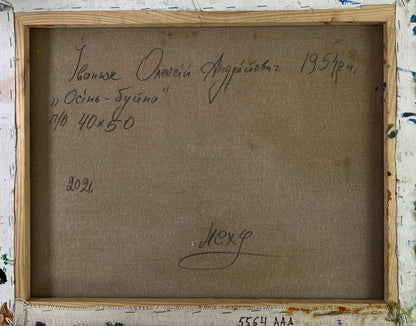 Іванюк Олексій Андрійович 1954р.н,
„Осінь-буйна"
п/о 40х50
2021.
НСХУ
5564 ААА